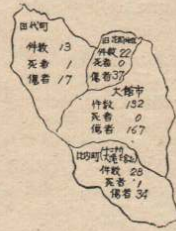 田代町
件数 13
死者 1
傷者 17
件数 22
死者 0
傷者 37
大館市
件数 132
死者 0
傷者 167
比内町
件数 28
死者 1
傷者 34